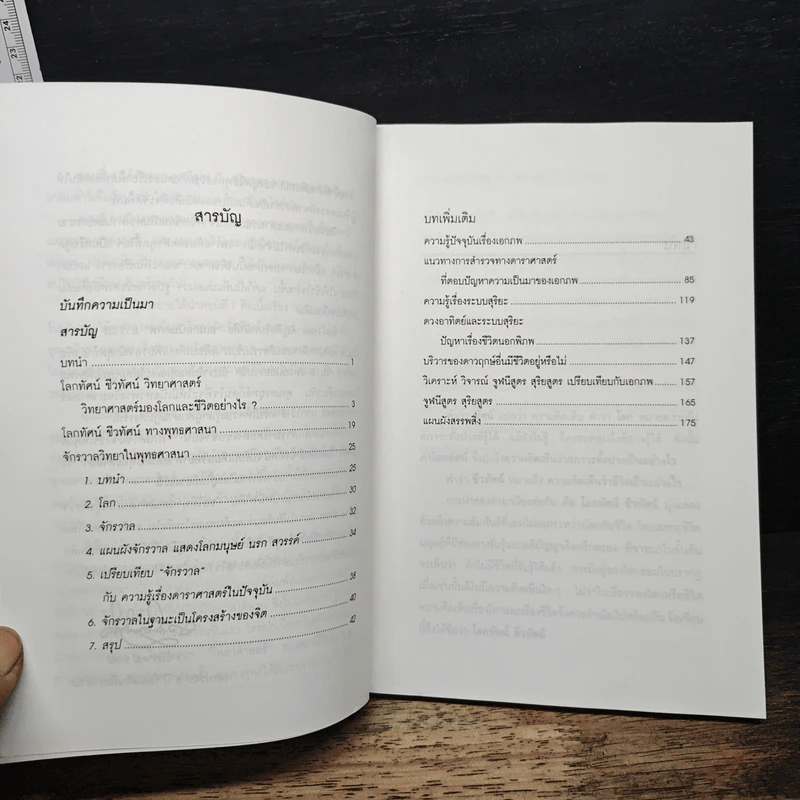 สารบัญ
บันทึกความเป็นมา
สารบัญ
บทนำ 1
โลกทัศน์ ชีวทัศน์ วิทยาศาสตร์
วิทยาศาสตร์มองโลกและชีวิตอย่างไร ? 3
โลกทัศน์ ชีวทัศน์ ทางพุทธศาสนา 19
จักรวาลวิทยาในพุทธศาสนา 25
1. บทนำ 25
2. โลก 30
3. จักรวาล 32
4. แผนผังจักรวาล แสดงโลกมนุษย์ นรก สวรรค์ 34
5. เปรียบเทียบ "จักรวาล"
กับ ความรู้เรื่องดาราศาสตร์ในปัจจุบัน 38
6. จักรวาลในฐานะเป็นโครงสร้างของจิต 40
7. สรุป 42
บทเพิ่มเติม
ความรู้ปัจจุบันเรื่องเอกภพ 43
แนวทางการสำรวจทางดาราศาสตร์
ที่ตอบปัญหาความเป็นมาของเอกภพ 85
ความรู้เรื่องระบบสุริยะ 119
ดวงอาทิตย์และระบบสุริยะ
ปัญหาเรื่องชีวิตนอกพิภพ 137
บริวารของดาวฤกษ์อื่นมีชีวิตอยู่หรือไม่ 147
วิเคราะห์ วิจารณ์ จูฬนีสูตร สุริยสูตร เปรียบเทียบกับเอกภพ 157
จูฬนีสูตร สุริยสูตร 165
แผนผังสรรพสิ่ง 175
22
23
24